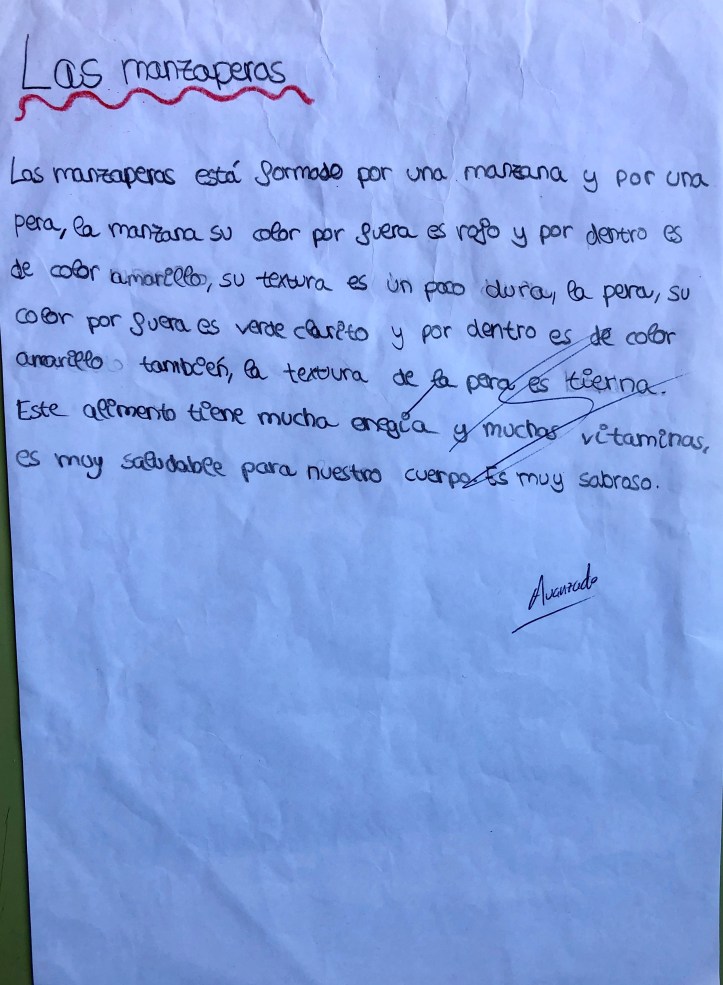 Las manzaperas
Las manzaperas está formado por una manzana y por una
pera, la manzana su color por fuera es rojo y por dentro es
de color amarillo, su textura es un poco dura, la pera, su
color por fuera es verde clarito y por dentro es de color
amarillo también, la textura de la pera es tierna.
Este alimento tiene mucha enegía y muchas vitaminas,
es muy saludable para nuestro cuerpo. Es muy sabroso.
Avanzado